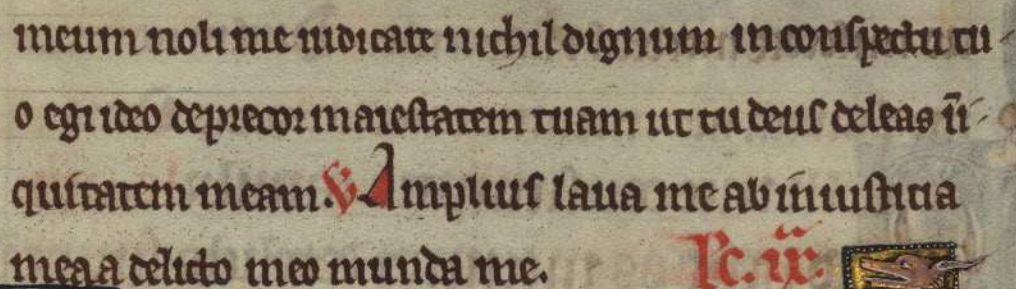 meum noli me iudicare nichil dignum in conspectu tu
o egi ideo deprecor maiestatem tuam ut tu deus deleas ini
quitatem meam. V Amplius laua me ab iniusticia
mea a delicto meo munda me. Lc. ix.